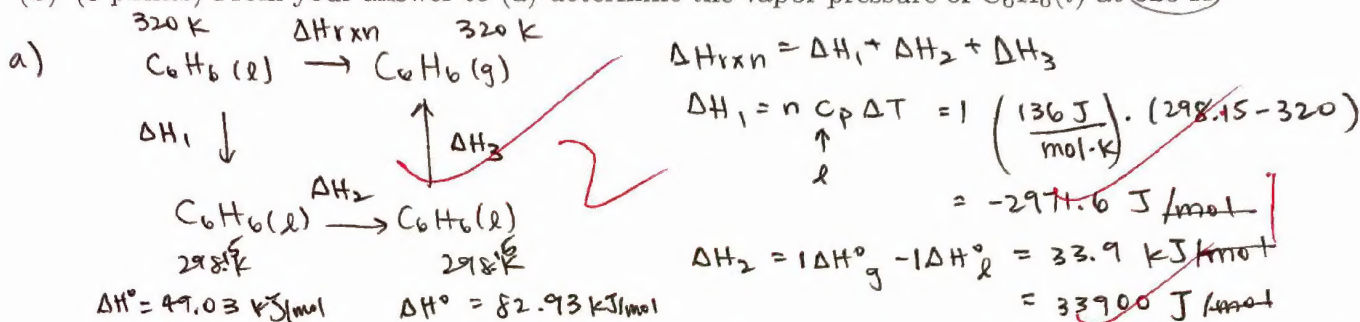 320 K ΔHrxn 320 K
a) C6H6 (l) → C6H6 (g)
ΔH1 ↓ ↑ ΔH3
ΔH2
C6H6(l) → C6H6(l)
298.15 K 298.15 K
ΔH° = 49.03 kJ/mol ΔH° = 82.93 kJ/mol
ΔHrxn = ΔH1 + ΔH2 + ΔH3
ΔH1 = n Cp ΔT = 1 (136 J / mol·K) · (298.15 - 320)
↑
l
= -2971.6 J /mol
ΔH2 = 1ΔH°g - 1ΔH°l = 33.9 kJ/mol
= 33900 J /mol
2
1